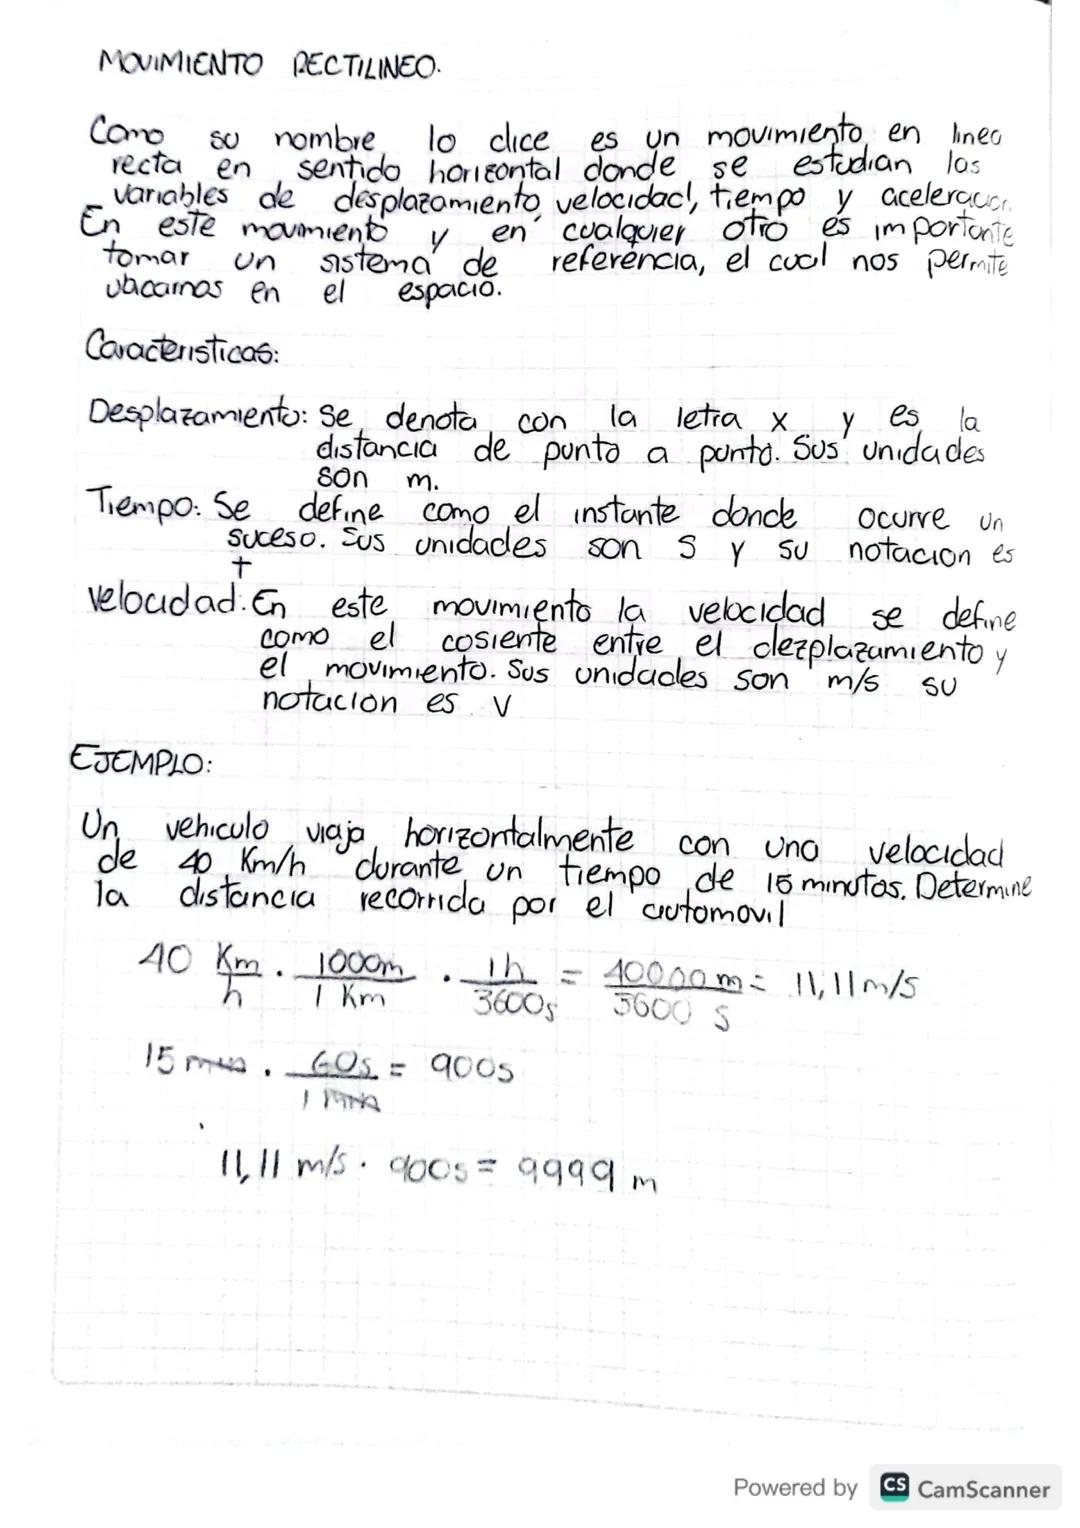 MOVIMIENTO RECTILINEO.
Como su nombre lo dice es un movimiento en linea
recta en sentido horizontal donde se estudian las
variables de desplazamiento, velocidad, tiempo y aceleracion
En este movimiento y en cualquier otro es importante
tomar un sistema de referencia, el cual nos permite
ubicarnos en el espacio.
Caracteristicas:
Desplazamiento: Se denota con la letra x y es la
distancia de punto a punto. Sus unidades
son m.
Tiempo: Se define como el instante donde ocurre un
suceso. Sus unidades son s y su notacion es
t
Velocidad: En este movimiento la velocidad se define
como el cosiente entre el dezplazamiento y
el movimiento. Sus unidades son m/s su
notacion es v
EJEMPLO:
Un vehiculo viaja horizontalmente con una velocidad
de 40 Km/h durante un tiempo de 15 minutos. Determine
la distancia recorrida por el automovil
40 Km/h · 1000m/1 Km · 1h/3600s = 40000 m/3600 s = 11,11 m/s
15 min · 60s/1 min = 900s
11,11 m/s · 900s = 9999 m
Powered by CS CamScanner